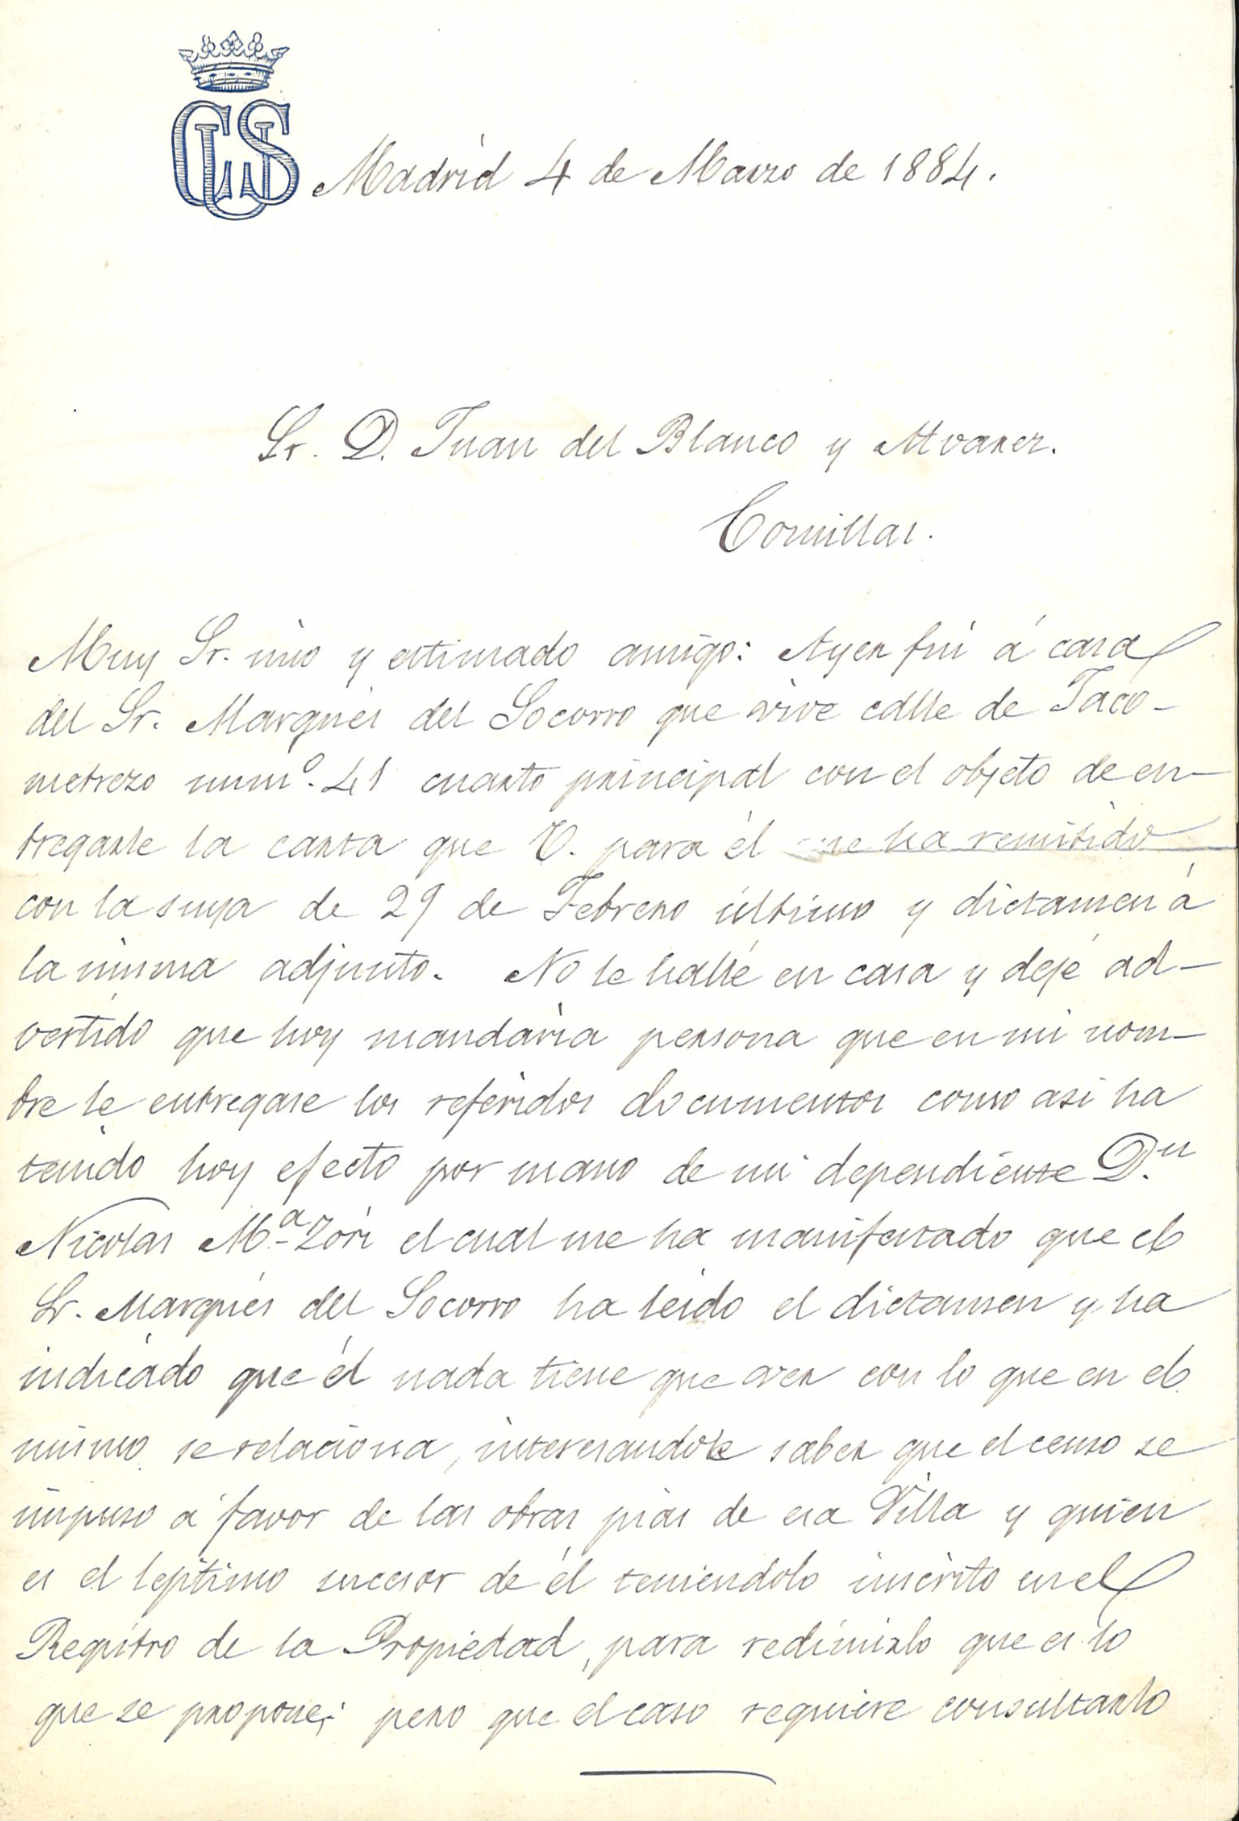 Madrid 4 de Marzo de 1884.
Sr. D. Juan del Blanco y Alvarez.
Comillas.
Muy Sr. mio y estimado amigo: Ayer fui á casa
del Sr. Marqués del Socorro que vive calle de Jaco-
metrezo num.º 41 cuarto principal con el objeto de en-
tregarle la carta que V. para él me ha remitido
con la suya de 29 de Febrero último y dictamen á
la misma adjunto. No le hallé en casa y dejé ad-
vertido que hoy mandaria persona que en mi nom-
bre le entregase los referidos documentos como asi ha
tenido hoy efecto por mano de mi dependiente D.n
Nicolas M.a Zori el cual me ha manifestado que el
Sr. Marqués del Socorro ha leido el dictamen y ha
indicado que él nada tiene que ver con lo que en el
mismo se relaciona, interesandole saber que el censo se
impuso a favor de las obras pias de esa Villa y quien
es el legitimo sucesor de él teniendolo inscrito en el
Registro de la Propiedad, para redimirlo que es lo
que se propone; pero que el caso requiere consultarlo